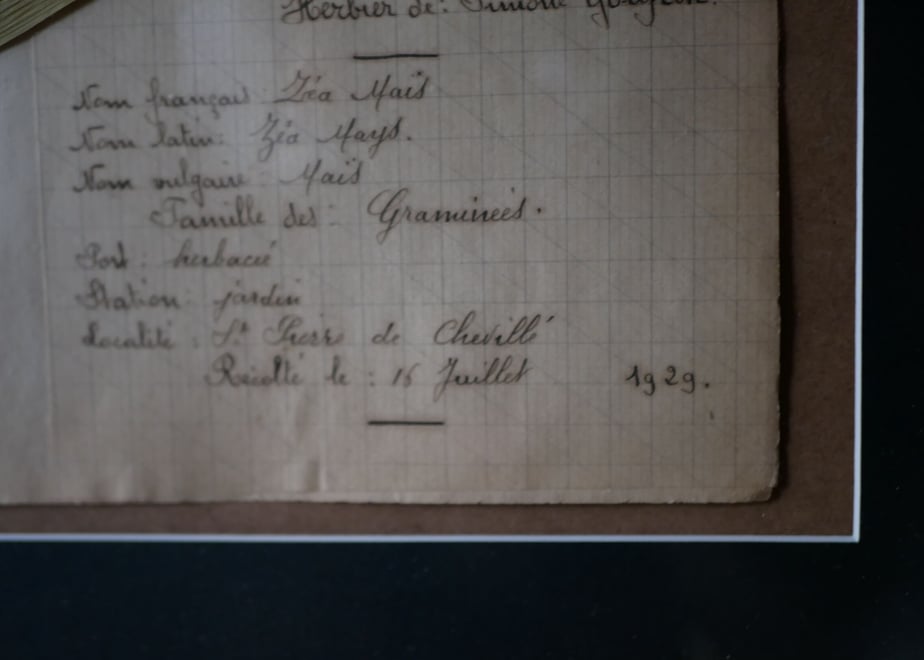 Herbier de: Simone
Nom français: Zéa Maïs
Nom latin: Zéa Mays.
Nom vulgaire: Maïs
Famille des: Graminées.
Port: herbacé
Station: jardin
Localité: St Pierre de Chevillé
Récolté le: 16 Juillet 1929.